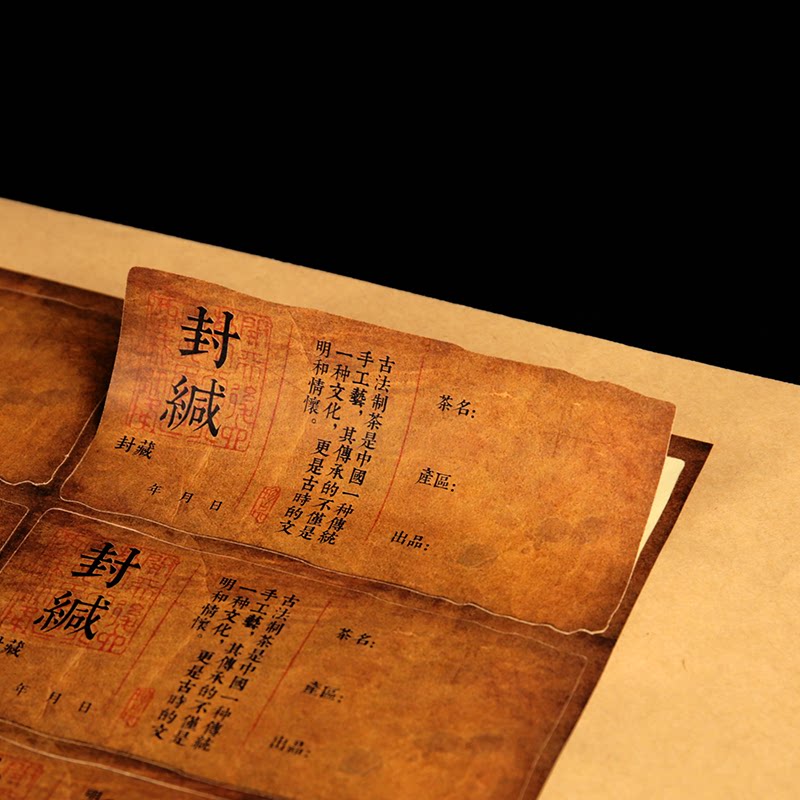 封緘
封藏
年 月 日
古法制茶是中國一种傳統
手工藝，其傳承的不僅是
一种文化，更是古時的文
明和情懷。
茶名：
產區：
出品：
封緘
藏
年 月 日
古法制茶是中國一种傳統
手工藝，其傳承的不僅是
一种文化，更是古時的文
明和情懷
茶名：
產區：
出品：